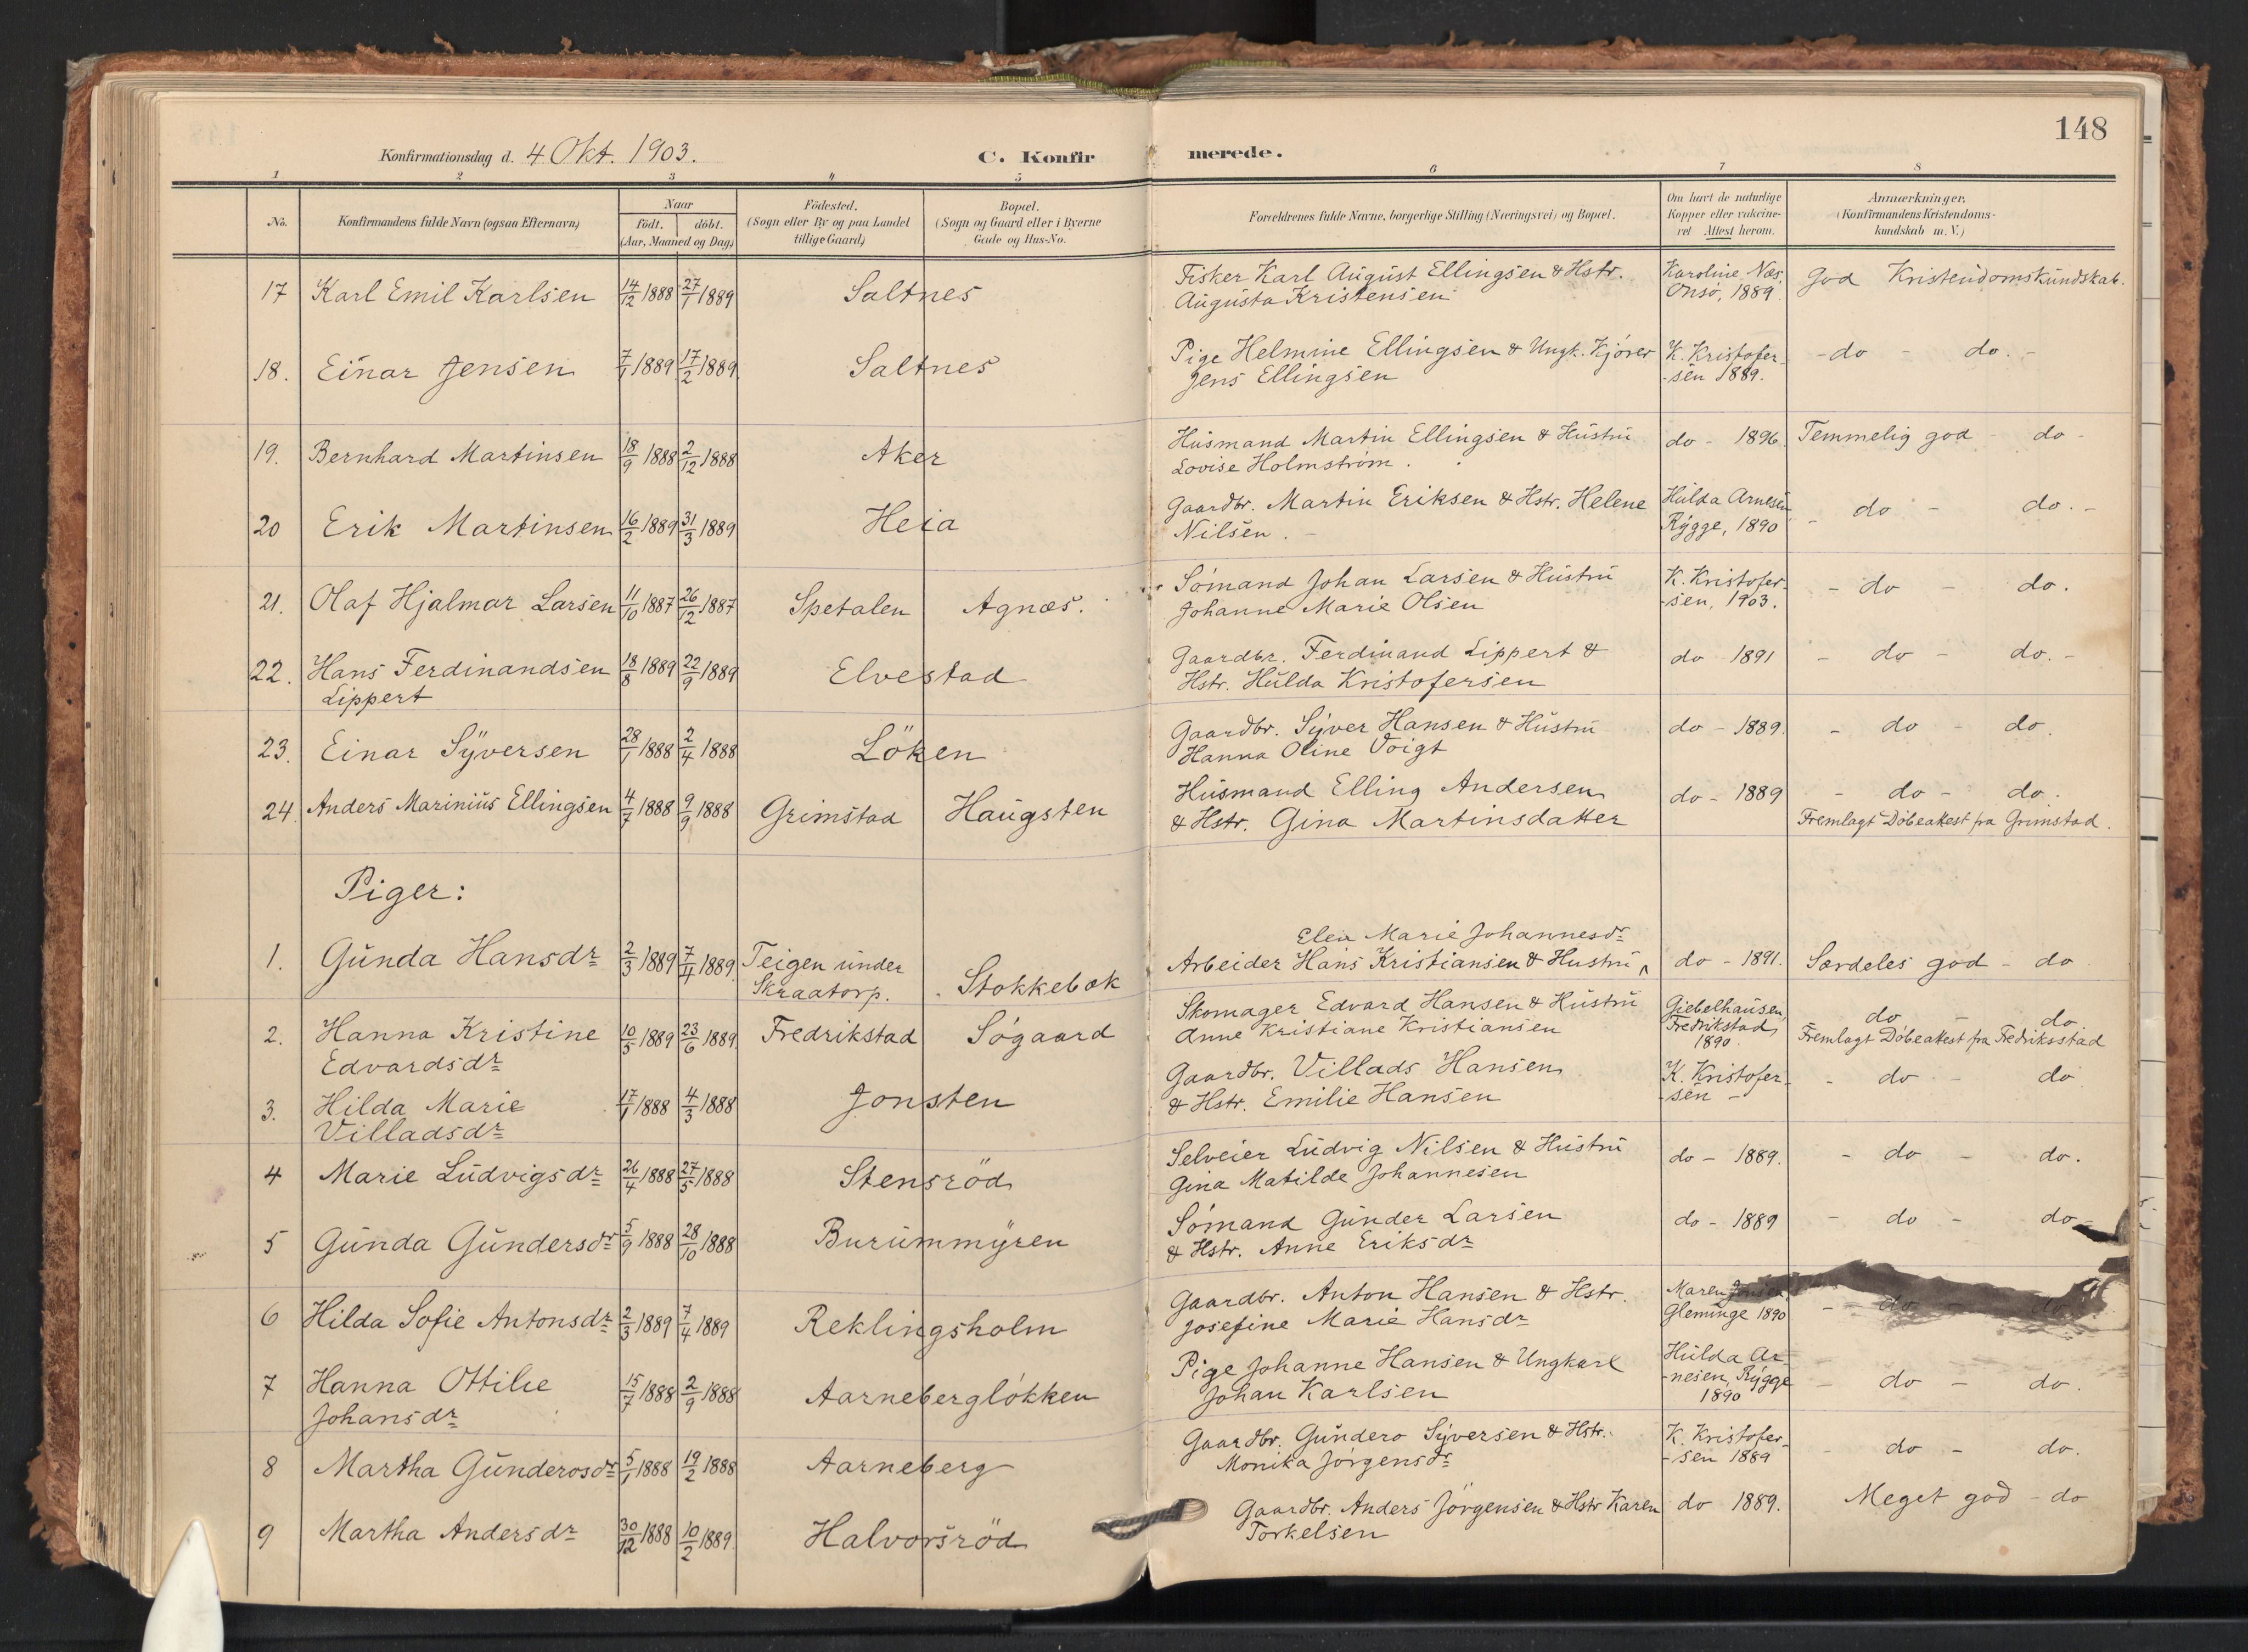 148
Konfirmationsdag d. 4 Okt. 1903.
C. Konfirmerede.
1 2 3 4 5 6 7 8
No.
Konfirmandens fulde Navn (ogsaa Efternavn)
Naar
født. døbt.
(Aar, Maaned og Dag)
Fødested.
(Sogn eller By og paa Landet
tillige Gaard)
Bopæl.
(Sogn og Gaard eller i Byerne
Gade og Hus-No.
Forældrenes fulde Navne, borgerlige Stilling (Næringsvei) og Bopæl.
Om havt de naturlige
Kopper eller vakcine-
ret Attest herom.
Anmærkninger.
(Konfirmandens Kristendoms-
kundskab m. V.)
17 Karl Emil Karlsen 14/12 1888 27/1 1889 Saltnes Fisker Karl August Ellingsen & Hstr.
Augusta Kristensen
Karoline Næs.
Onsø, 1889.
God Kristendomskundskab.
18. Einar Jensen 7/1 1889 17/2 1889 Saltnes Pige Helmine Ellingsen & Ungk. Kjører
Jens Ellingsen
K. Kristofer-
-sen 1889.
- do - do. -
19. Bernhard Martinsen 18/9 1888 2/12 1888 Aker Husmand Martin Ellingsen & Hustru
Lovise Holmstrøm.
do - 1896. Temmelig god - do -
20 Erik Martinsen 16/2 1889 31/3 1889 Heia Gaardbr. Martin Eriksen & Hstr. Helene
Nilsen. -
Hulda Arnesen
Rygge, 1890
- do - do. -
21. Olaf Hjalmar Larsen 11/10 1887 26/12 1887 Spetalen Agnæs. Sømand Johan Larsen & Hustru
Johanne Marie Olsen
K. Kristofer-
-sen, 1903.
- do - do.
22. Hans Ferdinandsen
Lippert
18/8 1889 22/9 1889 Elvestad Gaardbr. Ferdinand Lippert &
Hstr. Hulda Kristofersen
do 1891 - do - do. -
23. Einar Syversen 28/1 1888 2/4 1888 Löken Gaardbr. Syver Hansen & Hustru
Hanna Oline Voigt
do - 1889. - do - do.
24. Anders Marinius Ellingsen 4/7 1888 9/9 1888 Grimstad Haugsten Husmand Elling Andersen
& Hstr. Gina Martinsdatter
do - 1889 - do - do.
Fremlagt Døbeattest fra Grimstad.
Piger:
1. Gunda Hansdr 2/3 1889 7/4 1889 Teigen under
Skraatorp.
Stokkebæk
Elen Marie Johannesdr
Arbeider Hans Kristiansen & Hustru
do - 1891. Særdeles god - do
2. Hanna Kristine
Edvardsdr
10/5 1889 23/6 1889. Fredrikstad Søgaard Skomager Edvard Hansen & Hustru
Anne Kristiane Kristiansen
Giebelhausen,
Fredrikstad,
1890.
do - do
Fremlagt Døbeattest fra Fredriksstad
3. Hilda Marie
Villadsdr
17/1 1888 4/3 1888 Jonsten Gaardbr. Villads Hansen
& Hstr. Emilie Hansen
K. Kristofer-
-sen -
- do - do
4 Marie Ludvigsdr 26/4 1888 27/5 1888 Stensröd Selveier Ludvig Nilsen & Hustru
Gina Matilde Johannesen
do - 1889. - do - do.
5 Gunda Gundersdr 5/9 1888 28/10 1888 Burummyren Sømand Gunder Larsen
& Hstr. Anne Eriksdr
do - 1889 - do - do -
6 Hilda Sofie Antonsdr 2/3 1889 7/4 1889 Reklingsholm Gaardbr. Anton Hansen & Hstr.
Josefine Marie Hansdr
Maren
Gleminge 1890
- do - do
7 Hanna Ottilie
Johansdr
15/7 1888 2/9 1888 Aarnebergløkken Pige Johanne Hansen & Ungkarl
Johan Karlsen
Hulda Ar-
-nesen, Rygge
1890
- do - do.
8 Martha Gunderosdr 5/1 1888 19/2 1888 Aarneberg Gaardbr. Gundero Syversen & Hstr.
Monika Jørgensdr
K. Kristofer-
-sen 1889
- do - do.
9 Martha Andersdr 30/12 1888 10/2 1889. Halvorsröd Gaardbr. Anders Jörgensen & Hstr Karen
Torkelsen
do 1889. Meget god - do